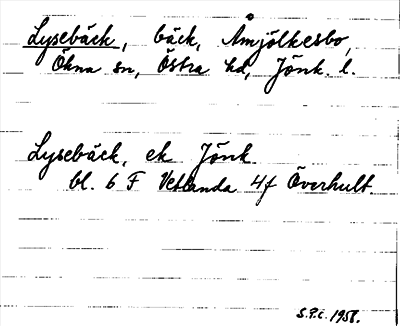 Lysebäck, bäck, Åmjölkesbo,
Ökna sn, Östra hd, Jönk. l.
Lysebäck, ek Jönk.
bl. 6 F Vetlanda 4f Överhult
S.P.i. 1958.